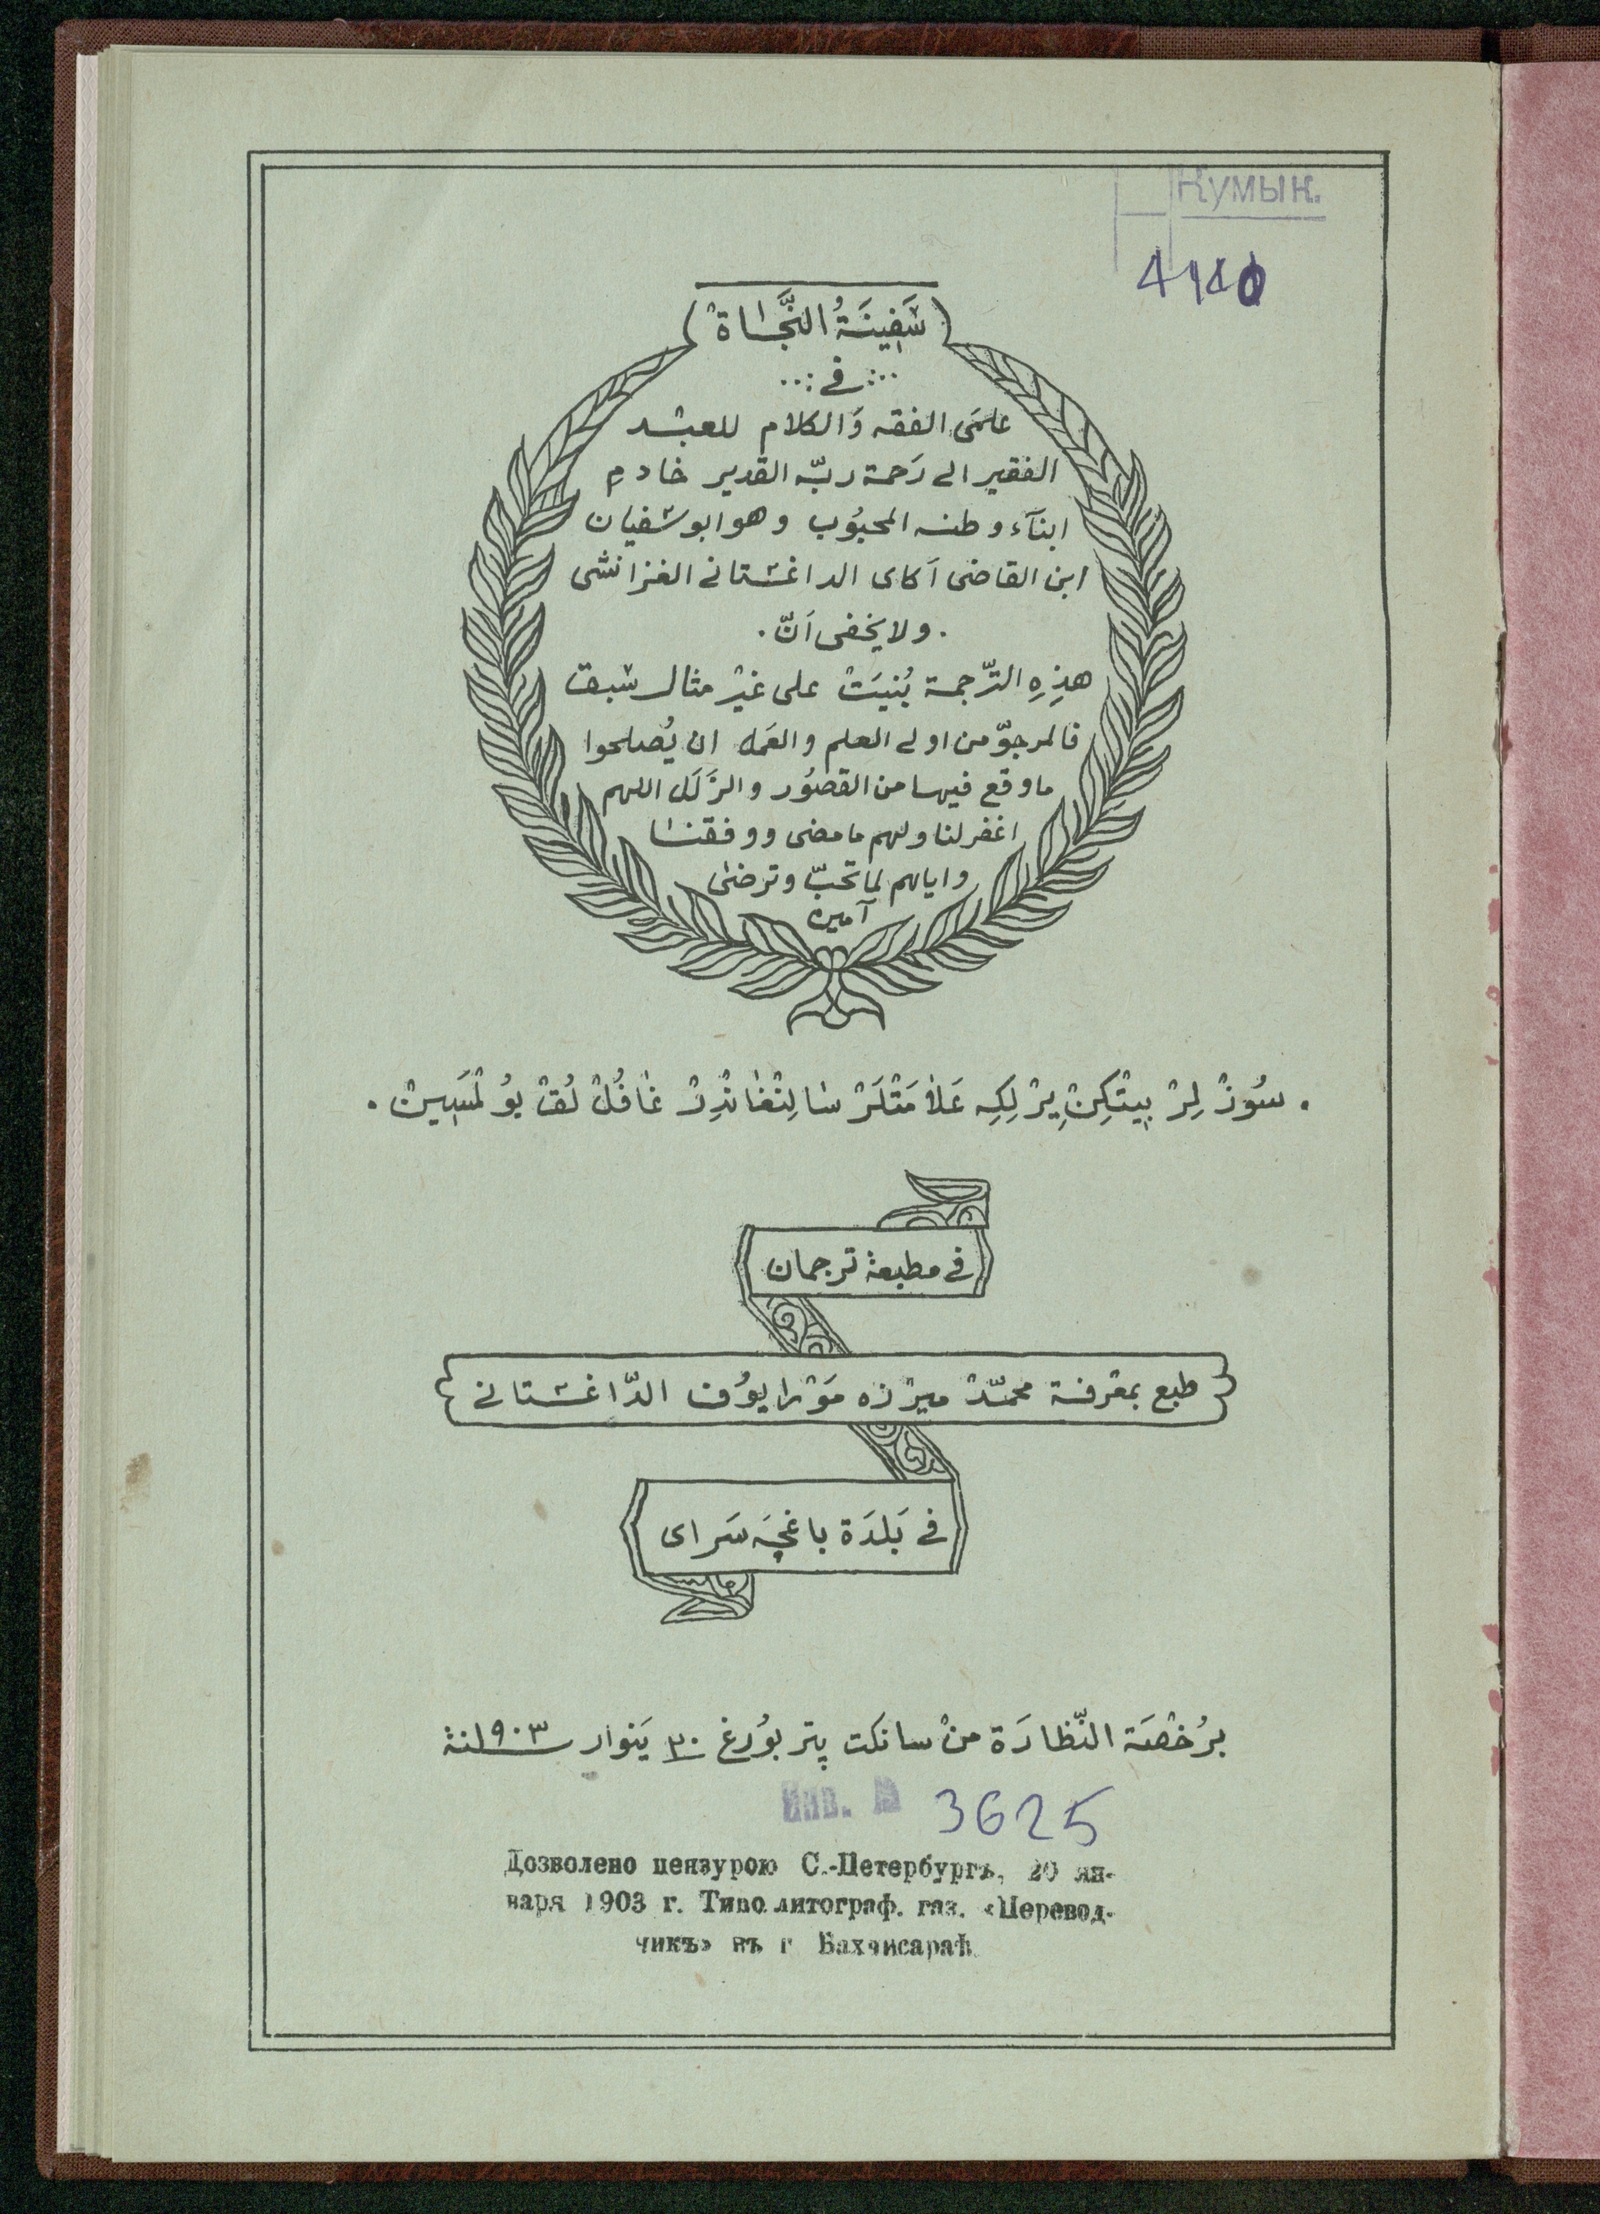 Кумык.
4140
سَفِينَةُ النَّجَاةْ
في
علمَى الفقه وَالكلام للعبْد
الفقير الى رَحمة ربّه القدير خادم
ابنآء وطنه المحبُوب وهو ابوسُفيان
ابن القاضى اَكاى الداغستانى الغزانشى
. ولا يخفى اَنّ .
هذِهِ التّرجمة بُنيَتْ على غيْر مثال سبق
فالمرجوّ من اولى العلم والعَمل ان يُصلحوا
ما وقع فيها من القصُور والزَلَل اللهم
اغفر لنا ولهم ما مضى ووفقنا
واياهم لما تحبّ وترضىٰ
آمين
. سُوزْ لِرْ بِيتْكِنْ يِرْ لِكِه عَلاٰمَتْلَرْ سٰالِنْغٰانْدِرْ غٰافُلْ لُقْ بُو لْمَسِينْ .
في مطبعة ترجمان
طبع بمعْرفة محمّدْ ميرْزه مَوْرايوُف الدّاغستانى
في بَلدَة باغچَه سَراى
برُخصَة النّظارَة منْ سانكت پتربوُرغ ٢٠ يَنوار سنة ١٩٠٣
Инв. № 3625
Дозволено цензурою С.-Петербургъ, 20 ян-
варя 1903 г. Типолитограф. газ. «Перевод-
чикъ» въ г Бахчисараѣ